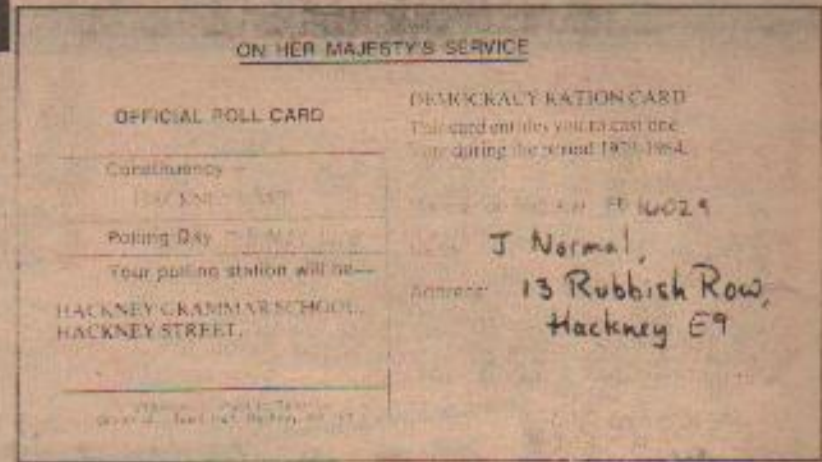 ON HER MAJESTY'S SERVICE
OFFICIAL POLL CARD
Constituency—
HACKNEY
Polling Day
Your polling station will be—
HACKNEY GRAMMAR SCHOOL,
HACKNEY STREET.
DEMOCRACY RATION CARD
This card entitles you to cast one
vote during the period 1979-1984.
16029
J Normal,
Address: 13 Rubbish Row,
Hackney E9